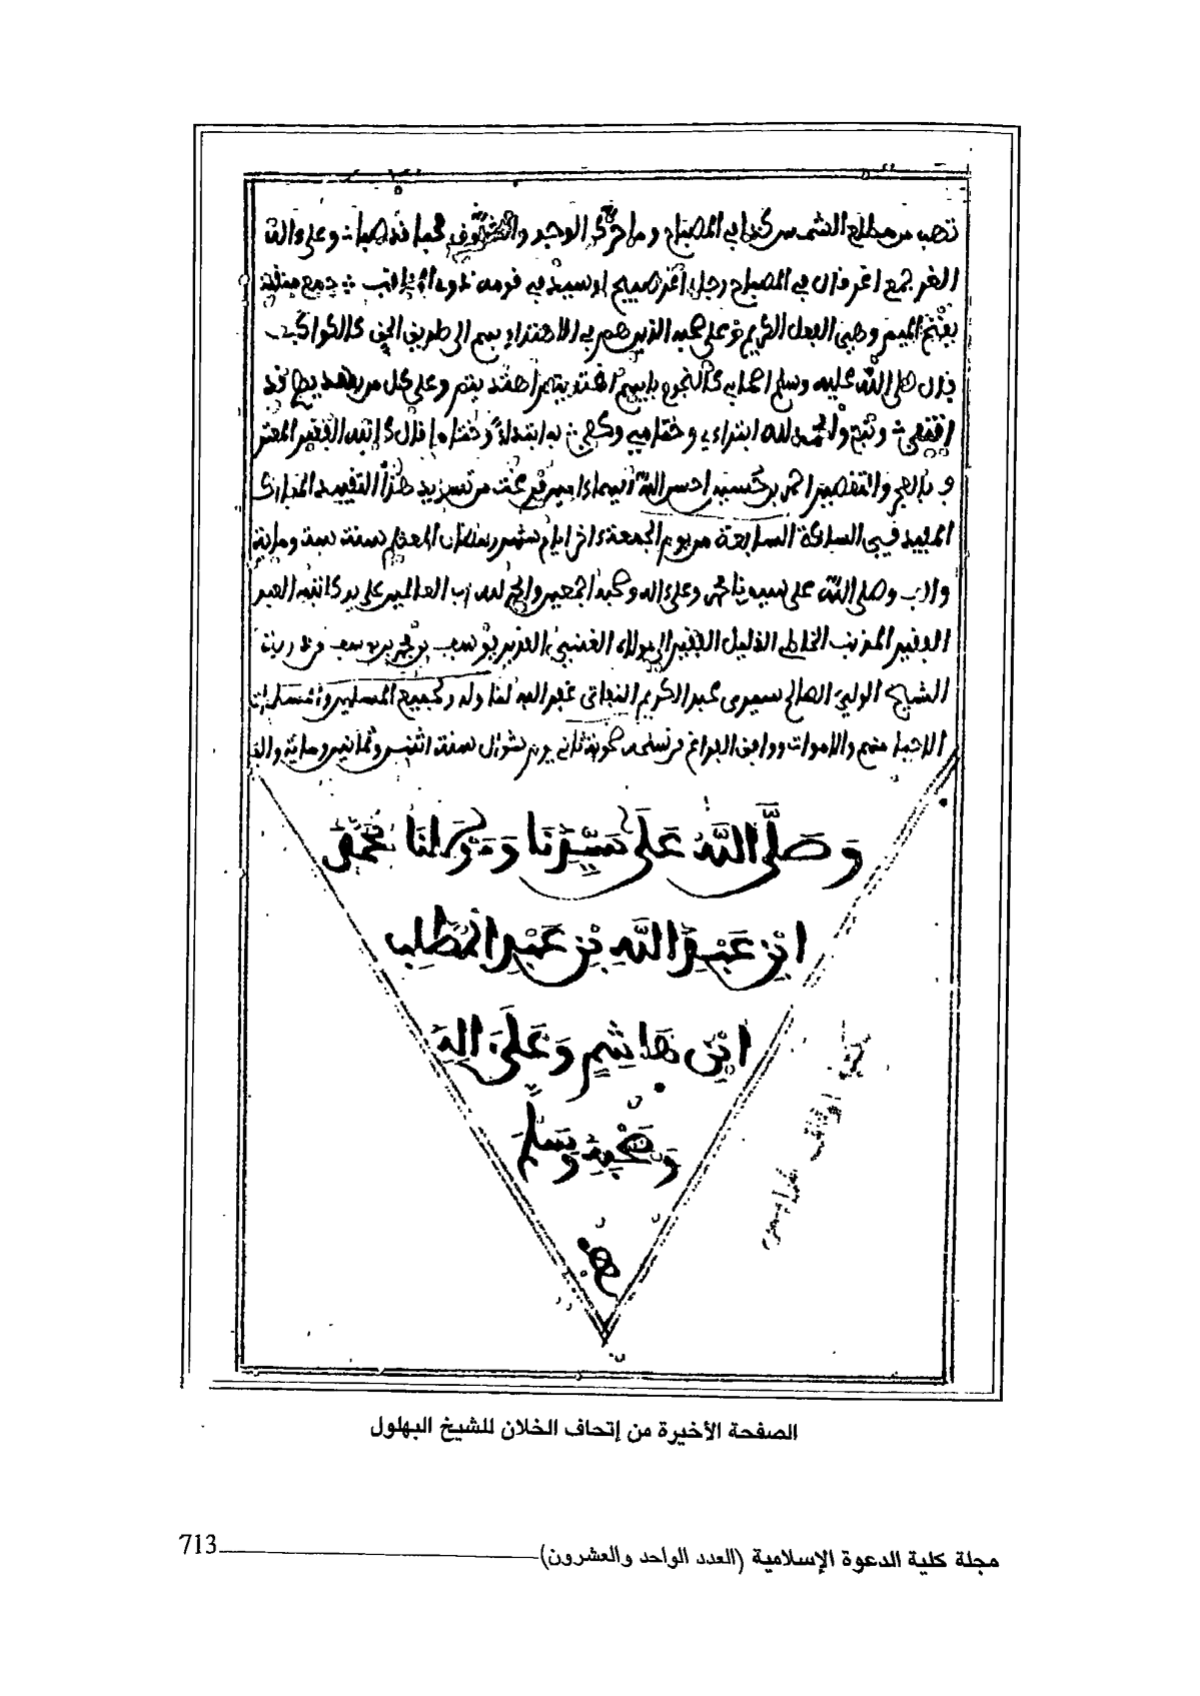 تهب من مطلع الشمس كذا في المصباح وما حرك الوجد والتشوف محبا فذهبا وعلى اله
الغر جمع اغر قال في المصباح رجل اغر صبيح او سيد في قومه ذوى المناقب جمع منقبة
بفتح الميم وهي الفعل الكريم وعلى صحبه الذين هم في الاهتداء بهم الى طريق الحق كالكواكب
قال صلى الله عليه وسلم اصحابي كالنجوم بايهم اقتديتم اهتديتم وعلى كل من بعهد
اقتفى والحمد لله ابتداءي وختامي وكفى به ابتداء وختاما قال كاتبه الفقير المعترف
بالعجز والتقصير احمد بن حسين احسن الله اليهما امين فرغت من تسويد هذا التقييد المبارك
المفيد في الساعة السابعة من يوم الجمعة اخر ايام شهر رمضان المعظم سنة ستة وماية
والف وصلى الله على سيدنا محمد وعلى اله وصحبه اجمعين والحمد لله رب العالمين على يد كاتبه العبد
الفقير المذنب الخاطي الذليل الفقير الى مولاه الغني العزيز يوسف بن محمد بن يوسف من ذرية
الشيخ الولي الصالح سيدي عبد الكريم غفر الله لنا وله ولجميع المسلمين والمسلمات
الاحياء منهم والاموات ووافق الفراغ من ثاني يوم شوال سنة اثنين وثمانين وماية والف
وَصَلَّى اللَّهُ عَلَى سَيِّدِنَا وَمَوْلَانَا مُحَمَّد
ابْنِ عَبْدِ اللَّهِ بْنِ عَبْدِ الْمُطَّلِب
ابْنِ هَاشِمٍ وَعَلَى اله
وَصَحْبِهِ وَسَلَّم
الصفحة الأخيرة من إتحاف الخلان للشيخ البهلول
مجلة كلية الدعوة الإسلامية (العدد الواحد والعشرون) 713